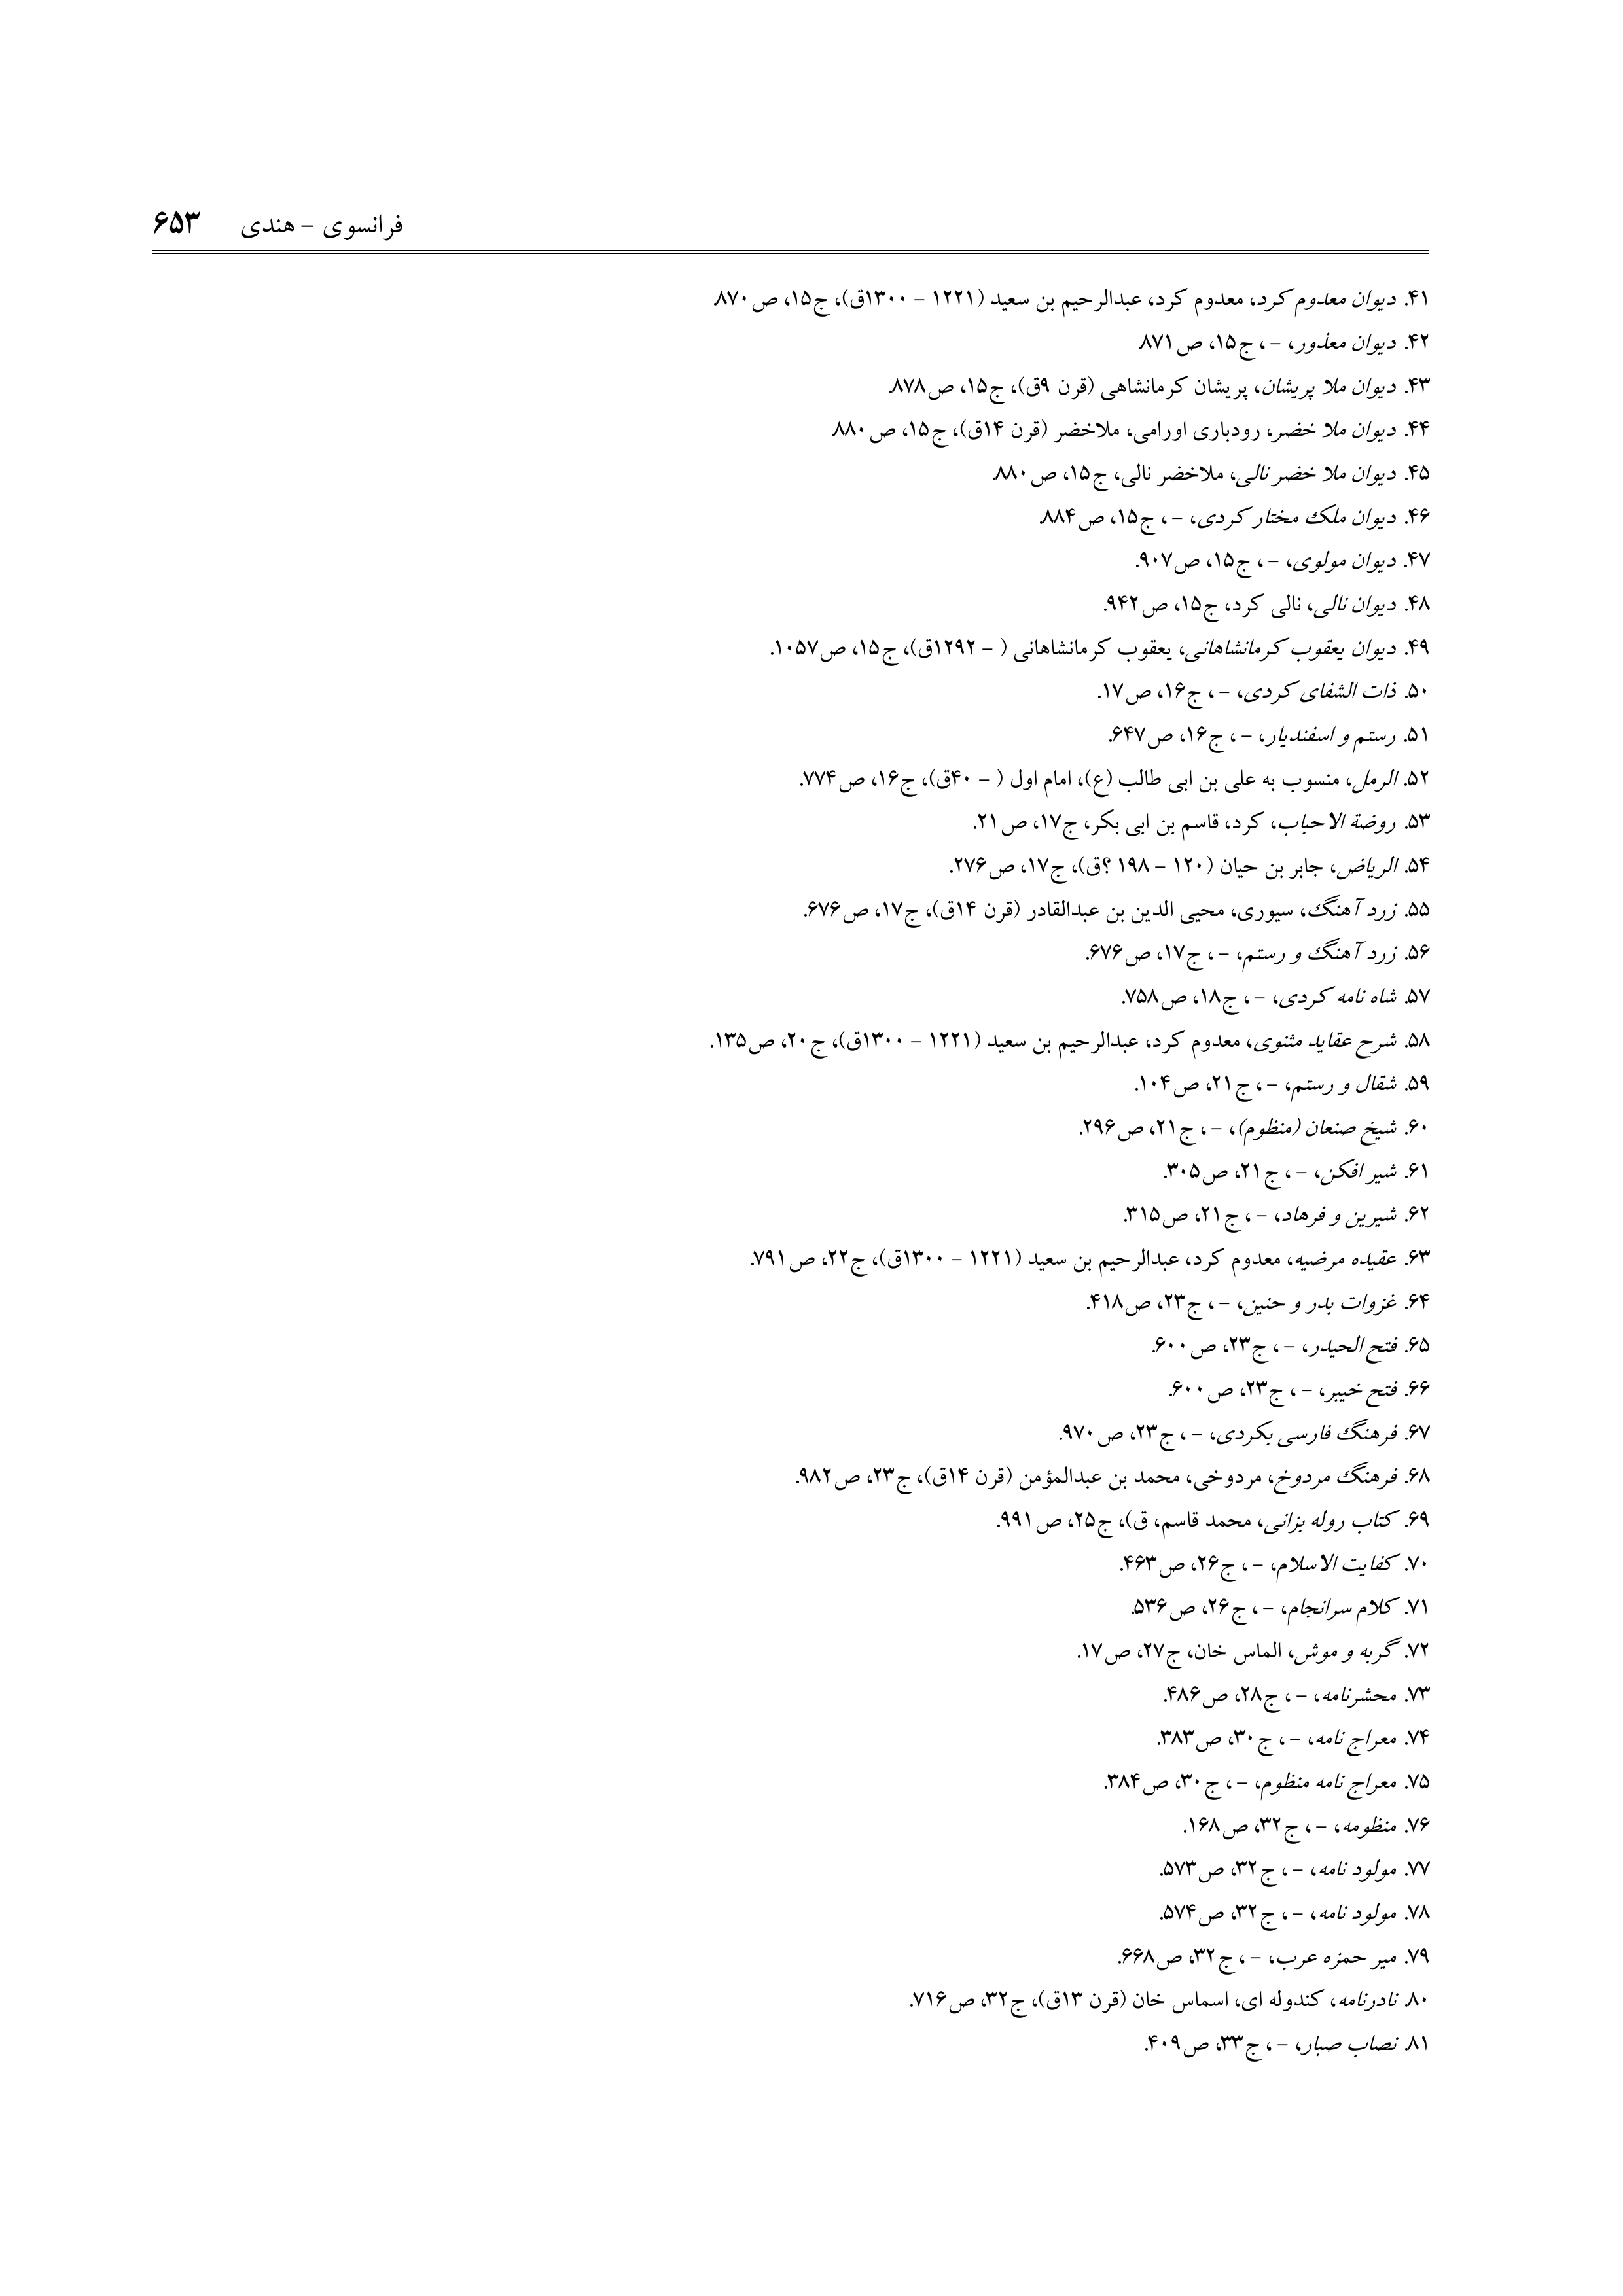 فرانسوی – هندی ۶۵۳
۴۱. دیوان معدوم کرد، معدوم کرد، عبدالرحیم بن سعید (۱۲۲۱ – ۱۳۰۰ق)، ج۱۵، ص۸۷۰.
۴۲. دیوان معذور، –، ج۱۵، ص۸۷۱.
۴۳. دیوان ملا پریشان، پریشان کرمانشاهی (قرن ۹ق)، ج۱۵، ص۸۷۸.
۴۴. دیوان ملا خضر، رودباری اورامی، ملاخضر (قرن ۱۴ق)، ج۱۵، ص۸۸۰.
۴۵. دیوان ملا خضر نالی، ملاخضر نالی، ج۱۵، ص۸۸۰.
۴۶. دیوان ملک مختار کردی، –، ج۱۵، ص۸۸۴.
۴۷. دیوان مولوی، –، ج۱۵، ص۹۰۷.
۴۸. دیوان نالی، نالی کرد، ج۱۵، ص۹۴۲.
۴۹. دیوان یعقوب کرمانشاهانی، یعقوب کرمانشاهانی ( – ۱۲۹۲ق)، ج۱۵، ص۱۰۵۷.
۵۰. ذات الشفای کردی، –، ج۱۶، ص۱۷.
۵۱. رستم و اسفندیار، –، ج۱۶، ص۶۴۷.
۵۲. الرمل، منسوب به علی بن ابی طالب (ع)، امام اول ( – ۴۰ق)، ج۱۶، ص۷۷۴.
۵۳. روضة الاحباب، کرد، قاسم بن ابی بکر، ج۱۷، ص۲۱.
۵۴. الریاض، جابر بن حیان (۱۲۰ – ۱۹۸ ؟ق)، ج۱۷، ص۲۷۶.
۵۵. زرد آهنگ، سیوری، محیی الدین بن عبدالقادر (قرن ۱۴ق)، ج۱۷، ص۶۷۶.
۵۶. زرد آهنگ و رستم، –، ج۱۷، ص۶۷۶.
۵۷. شاه نامه کردی، –، ج۱۸، ص۷۵۸.
۵۸. شرح عقاید مثنوی، معدوم کرد، عبدالرحیم بن سعید (۱۲۲۱ – ۱۳۰۰ق)، ج۲۰، ص۱۳۵.
۵۹. شقال و رستم، –، ج۲۱، ص۱۰۴.
۶۰. شیخ صنعان (منظوم)، –، ج۲۱، ص۲۹۶.
۶۱. شیر افکن، –، ج۲۱، ص۳۰۵.
۶۲. شیرین و فرهاد، –، ج۲۱، ص۳۱۵.
۶۳. عقیده مرضیه، معدوم کرد، عبدالرحیم بن سعید (۱۲۲۱ – ۱۳۰۰ق)، ج۲۲، ص۷۹۱.
۶۴. غزوات بدر و حنین، –، ج۲۳، ص۴۱۸.
۶۵. فتح الحیدر، –، ج۲۳، ص۶۰۰.
۶۶. فتح خیبر، –، ج۲۳، ص۶۰۰.
۶۷. فرهنگ فارسی بکردی، –، ج۲۳، ص۹۷۰.
۶۸. فرهنگ مردوخ، مردوخی، محمد بن عبدالمؤمن (قرن ۱۴ق)، ج۲۳، ص۹۸۲.
۶۹. کتاب روله بزانی، محمد قاسم، ق)، ج۲۵، ص۹۹۱.
۷۰. کفایت الاسلام، –، ج۲۶، ص۴۶۳.
۷۱. کلام سرانجام، –، ج۲۶، ص۵۳۶.
۷۲. گربه و موش، الماس خان، ج۲۷، ص۱۷.
۷۳. محشرنامه، –، ج۲۸، ص۴۸۶.
۷۴. معراج نامه، –، ج۳۰، ص۳۸۳.
۷۵. معراج نامه منظوم، –، ج۳۰، ص۳۸۴.
۷۶. منظومه، –، ج۳۲، ص۱۶۸.
۷۷. مولود نامه، –، ج۳۲، ص۵۷۳.
۷۸. مولود نامه، –، ج۳۲، ص۵۷۴.
۷۹. میر حمزه عرب، –، ج۳۲، ص۶۶۸.
۸۰. نادرنامه، کندوله ای، اسماس خان (قرن ۱۳ق)، ج۳۲، ص۷۱۶.
۸۱. نصاب صبار، –، ج۳۳، ص۴۰۹.